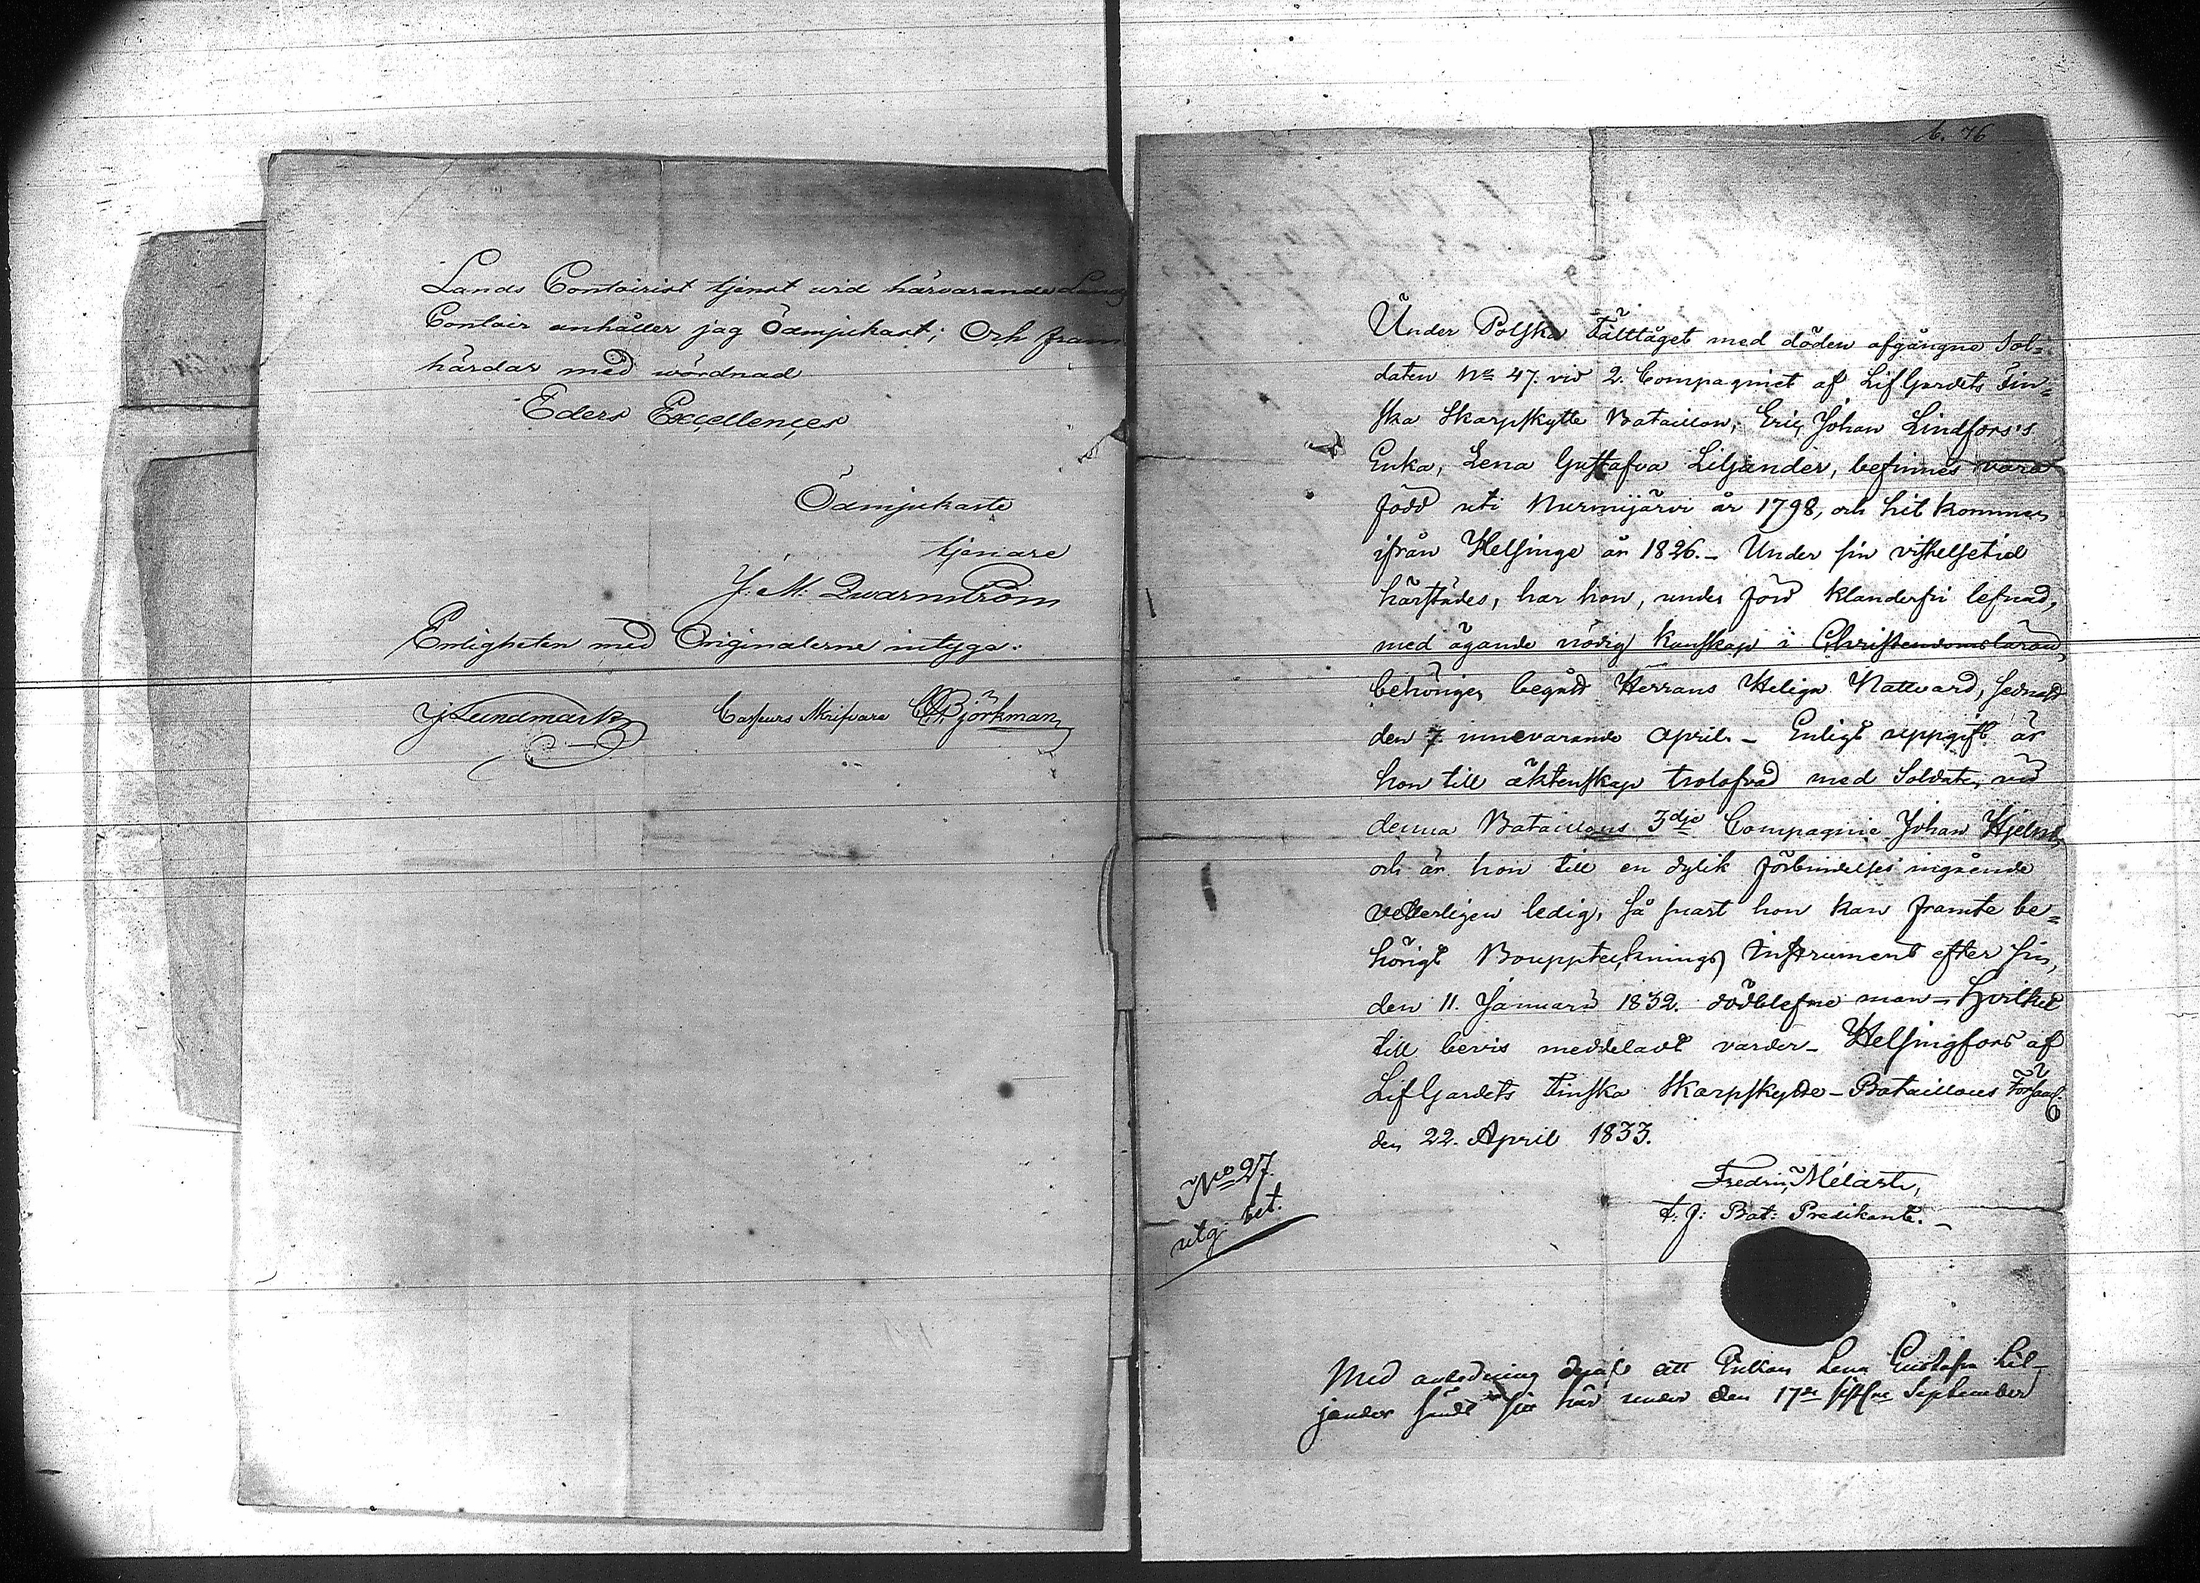 Lands Contoirist tjenst wid härvarande Lands
Contoir anhåller jag Ödmjukast; Och fram
härdar med wördnad
Eders Excellences
Ödmjukaste
tjenare
J. M. Qwarnström
Enligheten med Originalerne intyga:
J Lundmark Casseurs Skrifvare Björkman
6. 76
Under Polska Fälttåget med döden afgångne Sol-
daten No 47. vid 2. Compagniet af Lif Gardets Fin-
ska Skarpskytte Bataillon, Eric Johan Lindfors's
Enka, Lena Gustafva Liljander, befinnes vara
född uti Nurmijärvi år 1798, och hit kommen
ifrån Helsinge år 1826. – Under sin vistelsetid
härstädes, har hon, under förd klanderfri lefnad,
med ägande nödig kunskap i Christendomsläran,
behörigen begådt Herrans Heliga Nattvard, sednast
den 7 innevarande April. – Enligt uppgift är
hon till äktenskap trolofvad med Soldaten vid
denna Bataillons 3dje Compagnie Johan Hjelm,
och är hon till en dylik förbindelses ingående
vetterligen ledig, så snart hon kan framte be-
hörigt Bouppteknings Instrument efter sin,
den 11. Januarii 1832. dödblefne man – Hvilket
till bevis meddeladt varder – Helsingfors af
Lif Gardets Finska Skarpskytte-Bataillons Församl.
den 22. April 1833.
Fredric Melart,
t. f. Bat: Predikant. –
No 27.
utg. bet.
Med anledning deraf att Enkan Lena Gustafva Lil-
jander här under den 17de September